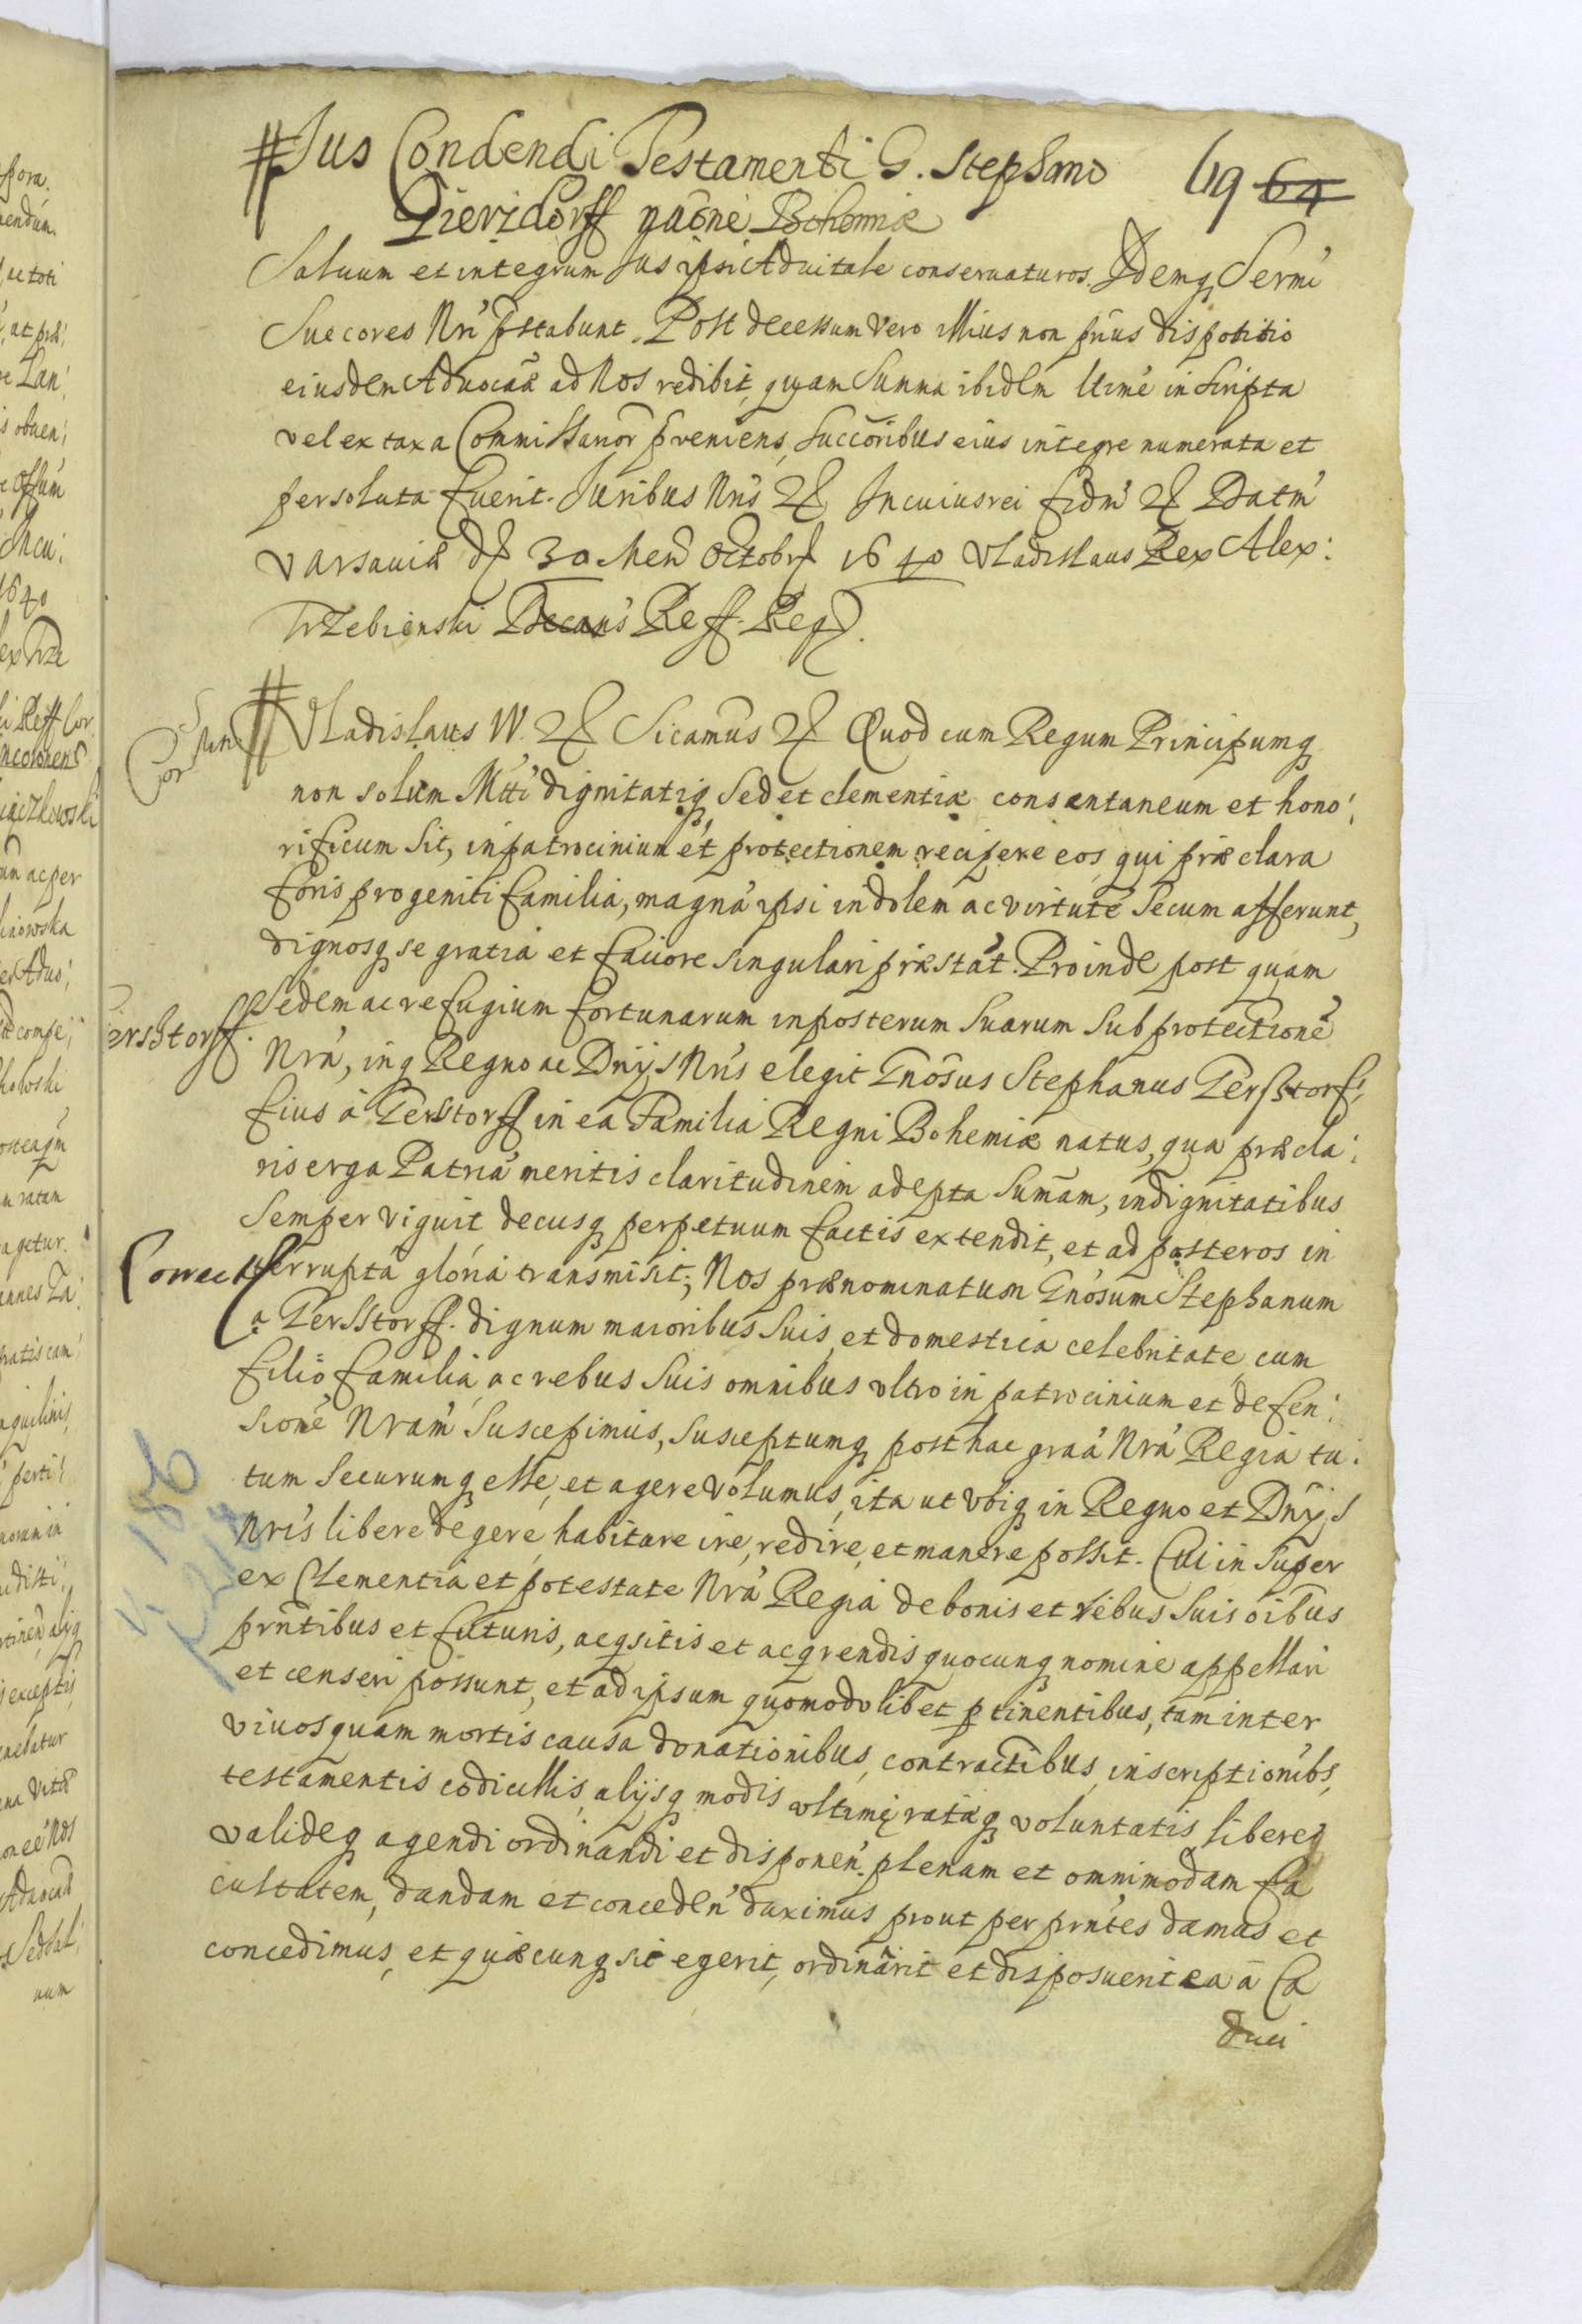 Jus Condendi Testamenti G. Stephano
69 64
Gierzdorff naōne Bohemiæ
Saluum et integrum Jus ipsi Aduitale conseruaturos. Idemq Sermi
Succores Nri pstabunt. Post decessum vero illius non prius dispositio
eiusdem Aduocaæ ad Nos redibit, quam Summa ibidem inscripta
vel ex taxa Commissarior pveniens, succoribus eius integre numerata et
persoluta fuerit. Juribus Nris In cuius rei fidm Datm
Varsaviæ 30 Men Octobr 1640 Vladislaus Rex Alex:
Trzebienski Reff. Reg.
Vladislaus IV. Sicamus Quod cum Regum Principumq
non solum Mtti dignitatiq, sed et clementiæ consentaneum et hono:
rificum sit, in patrocinium et protectionem recipere eos, qui præclara
foris progeniti familia, magná ipsi indolem ac virtutē secum afferunt,
dignosq se gratiá et fauore singulari præstāt. Proinde post quam
sedem ac refugium fortunarum in posterum suarum sub protectionē
Nrá, inq Regno ac Dnijs Nris elegit Gnosus Stephanus Gersztorf:
ersztorff.
fius á Gersstorff in ea Familia Regni Bohemiæ natus, qua præcla:
ris erga Patriá meritis claritudinem adepta sumam, in dignitatibus
semper viguit decusq perpetuum factis extendit, et ad posteros in
Correct
terruptá gloriá transmisit; Nos prænominatum Gnosum Stephanum
a Gersstorff. dignum maioribus suis, et domestica celebritate, cum
filio familiá, ac rebus suis omnibus vltro in patrocinium et defen:
sionē Nram suscepimus, susceptumq post hac graá Nrá Regiá tu:
tum securumq esse, et agere volumus, ita ut vbiq in Regno et Dnijs
Nris libere degere, habitare ire, redire, et manere possit. Cui in super
ex Clementia et potestate Nrá Regiá de bonis et rebus suis oibus
prntibus et futuris, acqsitis et acqrendis quocunq nomine appellari
et censeri possunt, et ad ipsum quomodolibet ptinentibus, tam inter
viuos quam mortis causa donationibus, contractibus, inscriptionibs,
testamentis codicillis, alijsq modis vltimę ratæq voluntatis libereq
valideq agendi ordinandi et disponen. plenam et omnimodam fa
cultatem, dandam et conceden duximus prout per prntes damus et
concedimus, et quæcunq sic egerit, ordinarit et disposuerit ea á Ca
duci